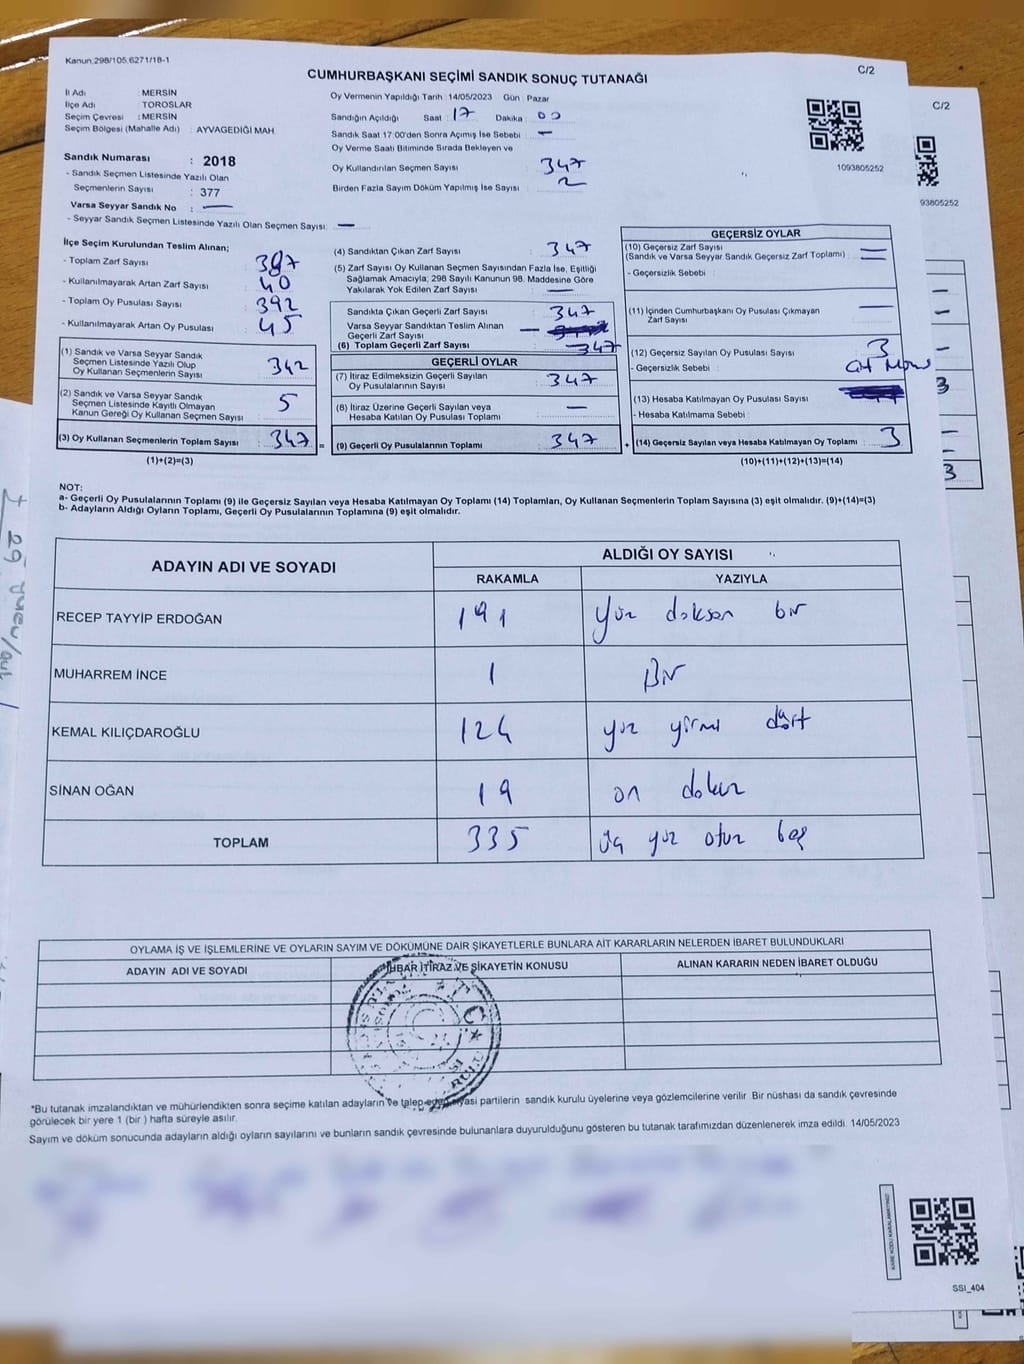 Kanun.298/105.6271/18-1
C/2
CUMHURBAŞKANI SEÇİMİ SANDIK SONUÇ TUTANAĞI
C/2
İl Adı : MERSİN
İlçe Adı : TOROSLAR
Seçim Çevresi : MERSİN
Seçim Bölgesi (Mahalle Adı) : AYVAGEDİĞİ MAH.
Sandık Numarası : 2018
- Sandık Seçmen Listesinde Yazılı Olan
Seçmenlerin Sayısı : 377
Varsa Seyyar Sandık No : —
- Seyyar Sandık Seçmen Listesinde Yazılı Olan Seçmen Sayısı: —
Oy Vermenin Yapıldığı Tarih : 14/05/2023 Gün : Pazar
Sandığın Açıldığı Saat : 17 Dakika : 00
Sandık Saat 17:00'den Sonra Açımış İse Sebebi : —
Oy Verme Saati Bitiminde Sırada Bekleyen ve
Oy Kullandırılan Seçmen Sayısı : 347
Birden Fazla Sayım Döküm Yapılmış İse Sayısı : 2
1093805252
93805252
İlçe Seçim Kurulundan Teslim Alınan;
- Toplam Zarf Sayısı : 387
- Kullanılmayarak Artan Zarf Sayısı : 40
- Toplam Oy Pusulası Sayısı : 392
- Kullanılmayarak Artan Oy Pusulası : 45
(1) Sandık ve Varsa Seyyar Sandık
Seçmen Listesinde Yazılı Olup
Oy Kullanan Seçmenlerin Sayısı : 342
(2) Sandık ve Varsa Seyyar Sandık
Seçmen Listesinde Kayıtlı Olmayan
Kanun Gereği Oy Kullanan Seçmen Sayısı : 5
(3) Oy Kullanan Seçmenlerin Toplam Sayısı : 347 =
(1)+(2)=(3)
(4) Sandıktan Çıkan Zarf Sayısı : 347
(5) Zarf Sayısı Oy Kullanan Seçmen Sayısından Fazla İse, Eşitliği
Sağlamak Amacıyla; 298 Sayılı Kanunun 98. Maddesine Göre
Yakılarak Yok Edilen Zarf Sayısı : —
Sandıkta Çıkan Geçerli Zarf Sayısı : 347
Varsa Seyyar Sandıktan Teslim Alınan —
Geçerli Zarf Sayısı
(6) Toplam Geçerli Zarf Sayısı : 347
GEÇERLİ OYLAR
(7) İtiraz Edilmeksizin Geçerli Sayılan
Oy Pusulalarının Sayısı : 347
(8) İtiraz Üzerine Geçerli Sayılan veya
Hesaba Katılan Oy Pusulası Toplamı : —
(9) Geçerli Oy Pusulalarının Toplamı : 347 +
GEÇERSİZ OYLAR
(10) Geçersiz Zarf Sayısı
(Sandık ve Varsa Seyyar Sandık Geçersiz Zarf Toplamı) : —
- Geçersizlik Sebebi : —
(11) İçinden Cumhurbaşkanı Oy Pusulası Çıkmayan
Zarf Sayısı : —
(12) Geçersiz Sayılan Oy Pusulası Sayısı : 3
- Geçersizlik Sebebi :
(13) Hesaba Katılmayan Oy Pusulası Sayısı :
- Hesaba Katılmama Sebebi :
(14) Geçersiz Sayılan veya Hesaba Katılmayan Oy Toplamı : 3
(10)+(11)+(12)+(13)=(14)
3
3
NOT:
a- Geçerli Oy Pusulalarının Toplamı (9) ile Geçersiz Sayılan veya Hesaba Katılmayan Oy Toplamı (14) Toplamları, Oy Kullanan Seçmenlerin Toplam Sayısına (3) eşit olmalıdır. (9)+(14)=(3)
b- Adayların Aldığı Oyların Toplamı, Geçerli Oy Pusulalarının Toplamına (9) eşit olmalıdır.
ADAYIN ADI VE SOYADI
ALDIĞI OY SAYISI
RAKAMLA YAZIYLA
RECEP TAYYİP ERDOĞAN 191 yüz doksan bir
MUHARREM İNCE 1 Bir
KEMAL KILIÇDAROĞLU 124 yüz yirmi dört
SİNAN OĞAN 19 on dokuz
TOPLAM 335 üç yüz otuz beş
OYLAMA İŞ VE İŞLEMLERİNE VE OYLARIN SAYIM VE DÖKÜMÜNE DAİR ŞİKAYETLERLE BUNLARA AİT KARARLARIN NELERDEN İBARET BULUNDUKLARI
ADAYIN ADI VE SOYADI
İHBAR İTİRAZ VE ŞİKAYETİN KONUSU
ALINAN KARARIN NEDEN İBARET OLDUĞU
*Bu tutanak imzalandıktan ve mühürlendikten sonra seçime katılan adayların ve talep eden siyasi partilerin sandık kurulu üyelerine veya gözlemcilerine verilir. Bir nüshası da sandık çevresinde
görülecek bir yere 1 (bir ) hafta süreyle asılır.
Sayım ve döküm sonucunda adayların aldığı oyların sayılarını ve bunların sandık çevresinde bulunanlara duyurulduğunu gösteren bu tutanak tarafımızdan düzenlenerek imza edildi. 14/05/2023
KARE KODU KARALAMAYINIZ!
SSI_404